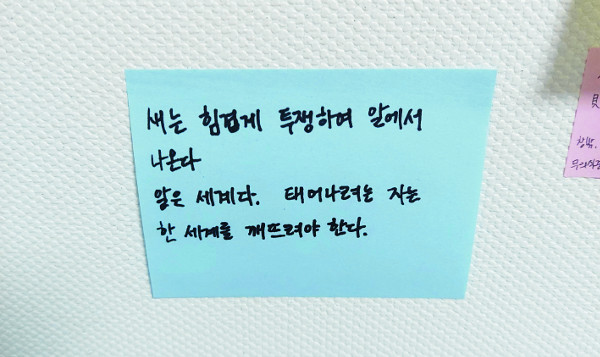 새는 힘겹게 투쟁하여 알에서
나온다
알은 세계다. 태어나려는 자는
한 세계를 깨뜨려야 한다.